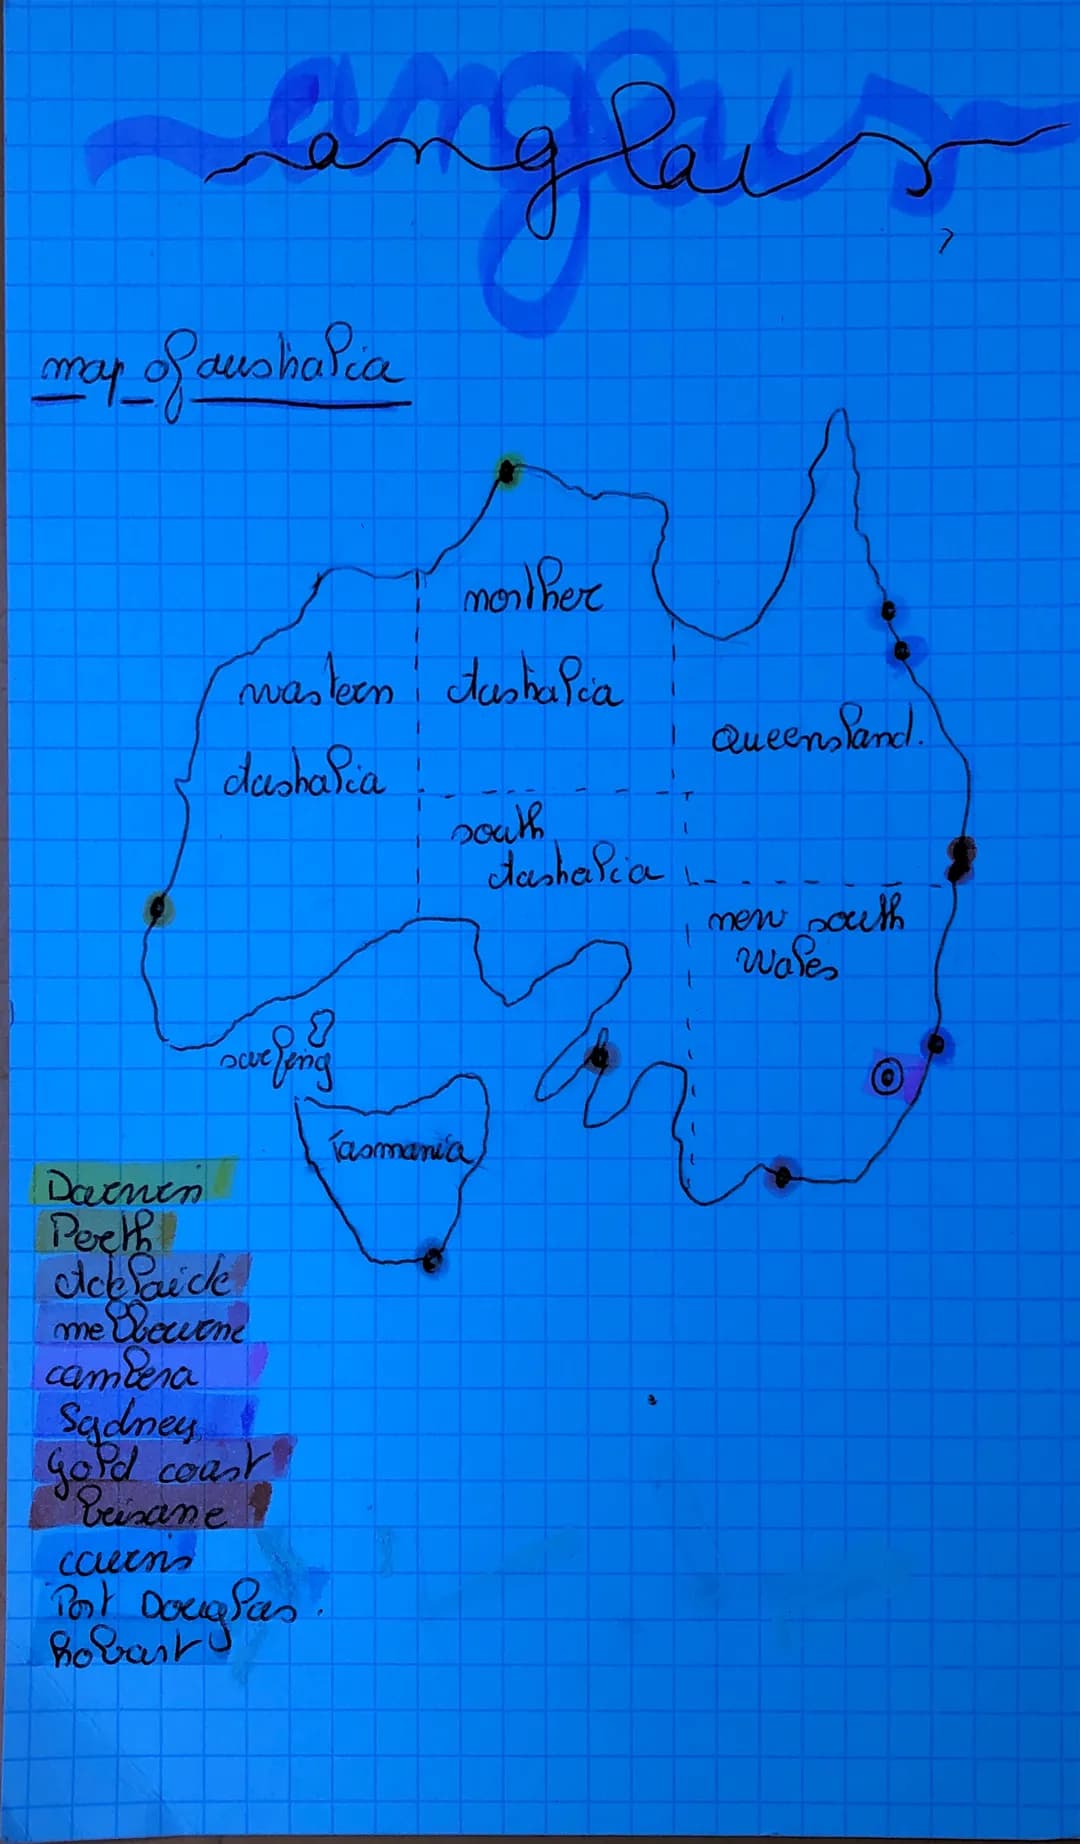 anglais
map of australia
norther
australia
wastern
australia
Queensland.
south
australia
new south
Wales
Tasmania
Darwin
Perth
Adelaide
melbourne
cambera
Sydney
Gold coast
brisane
cairns
Port Douglas.
Hobart